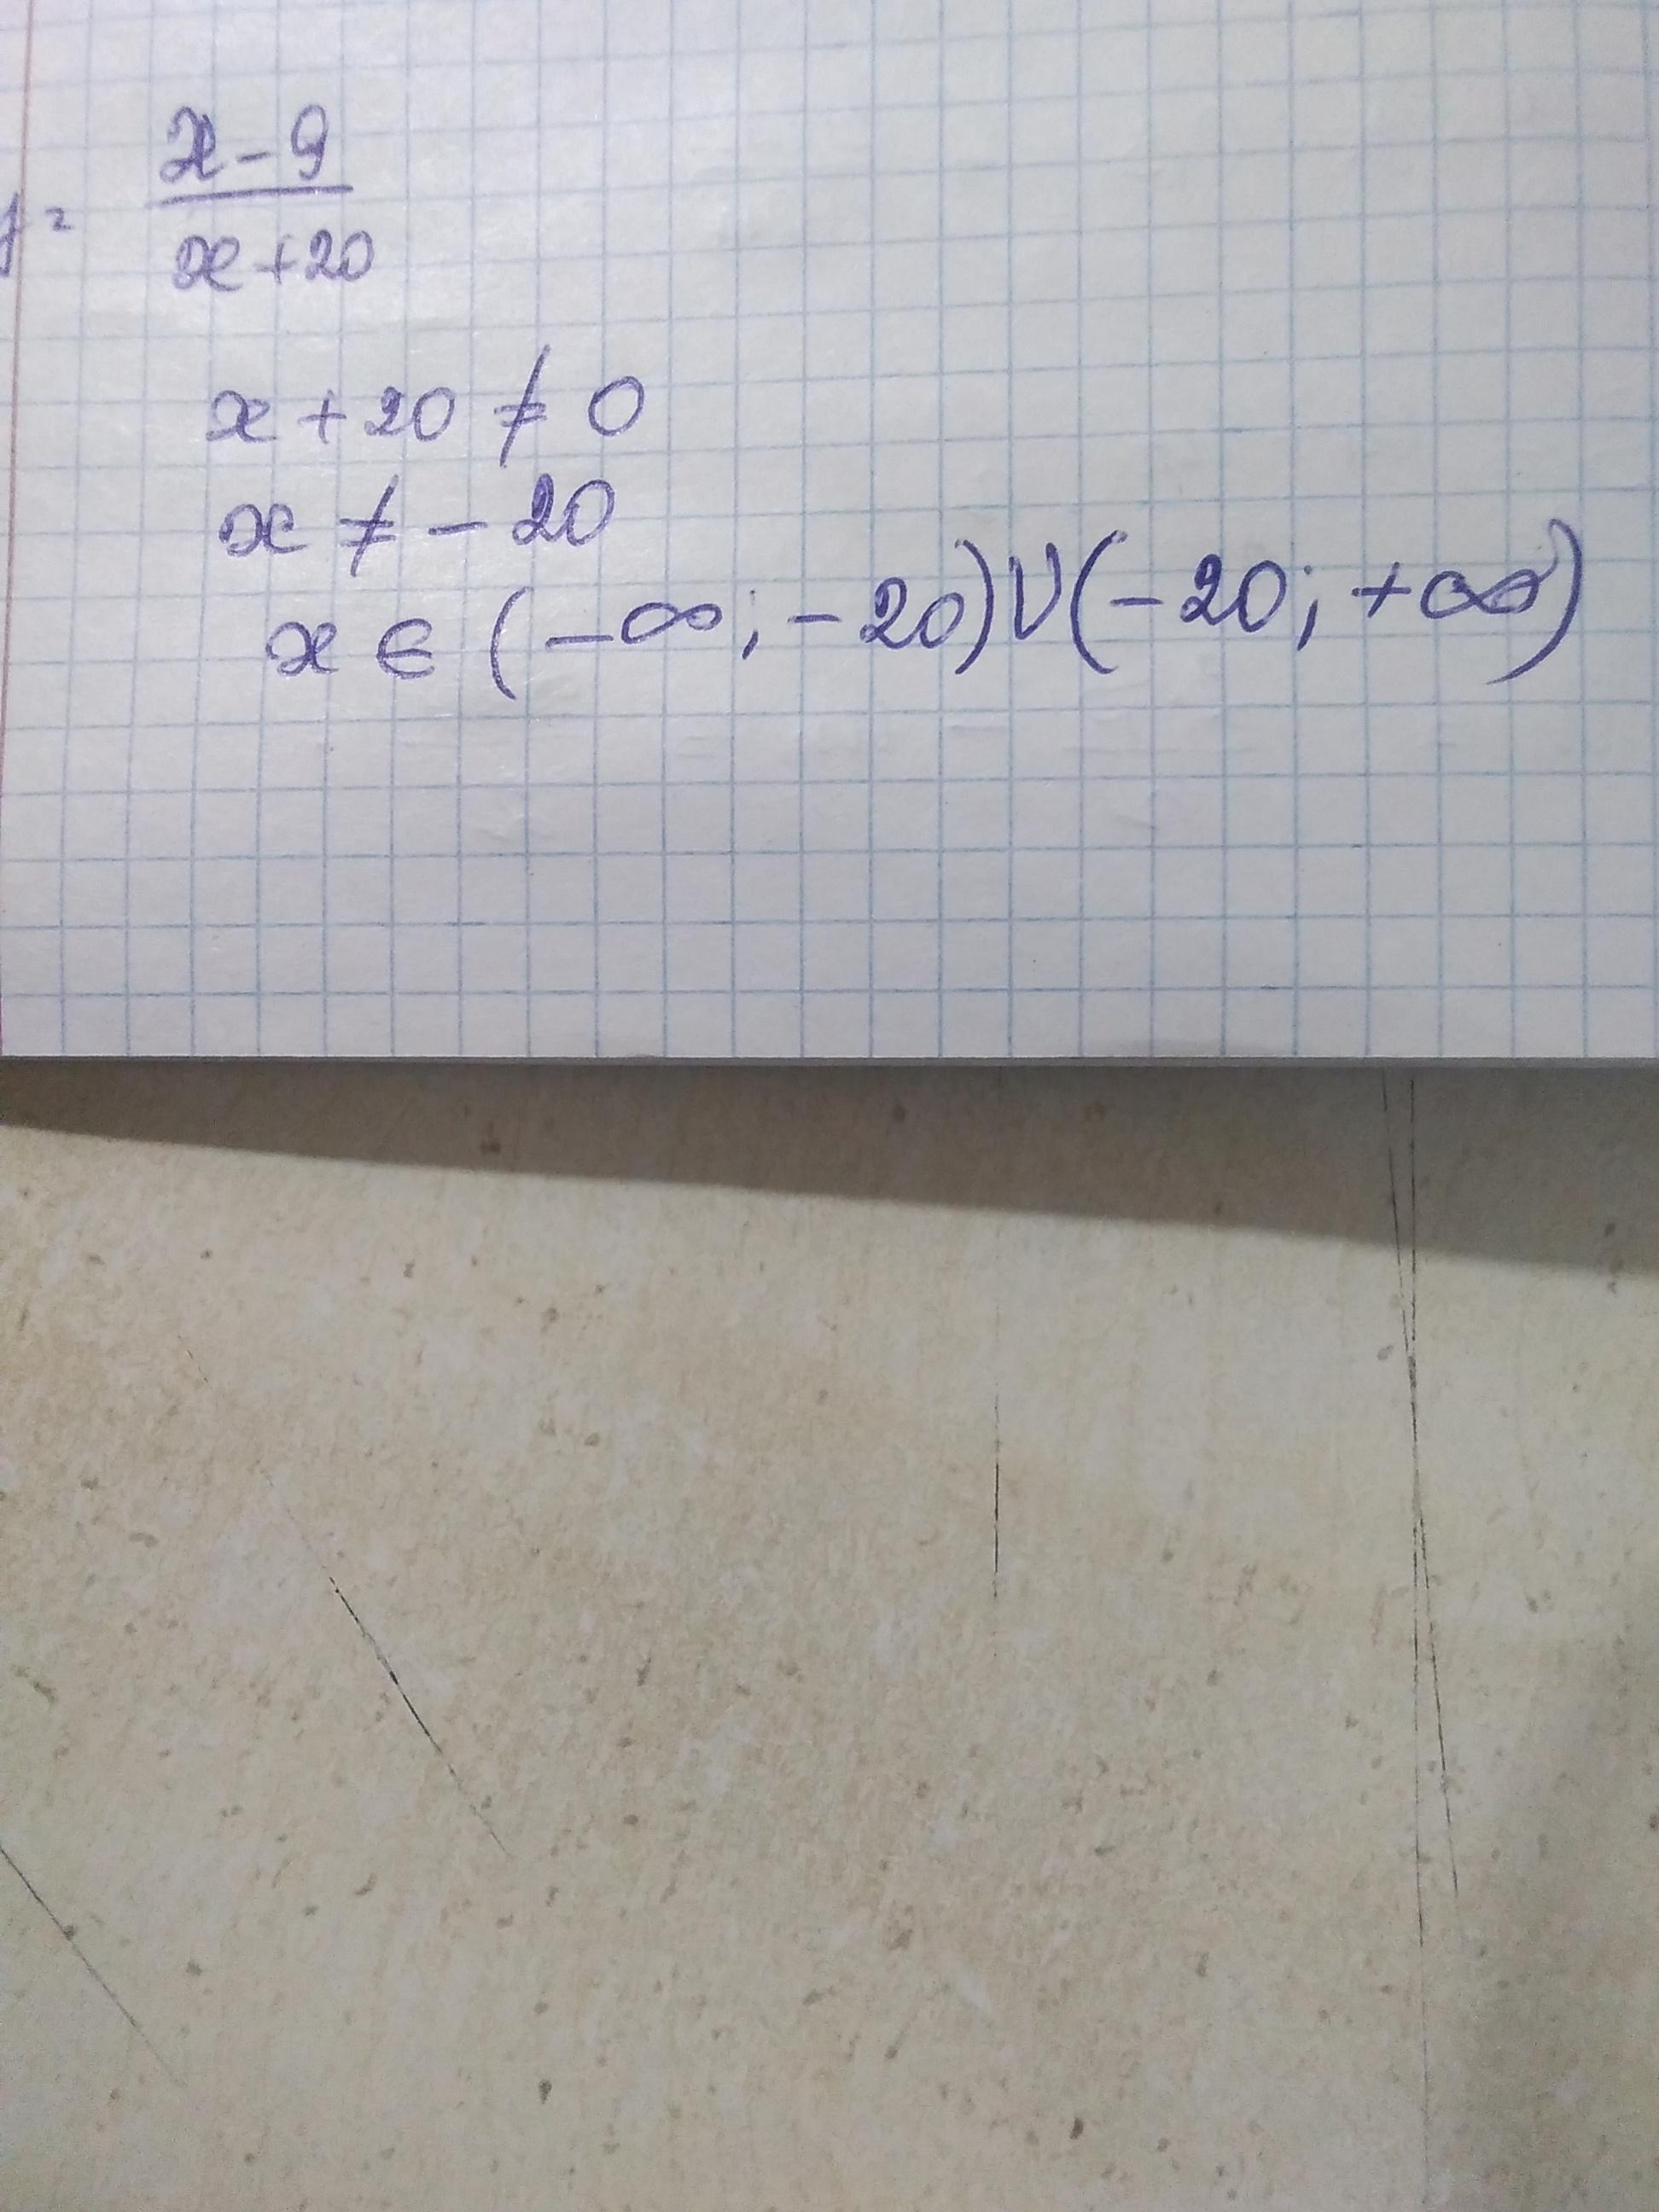 y = x - 9 / x + 20
x + 20 ≠ 0
x ≠ - 20
x ∈ (-∞; -20) ∪ (-20; +∞)